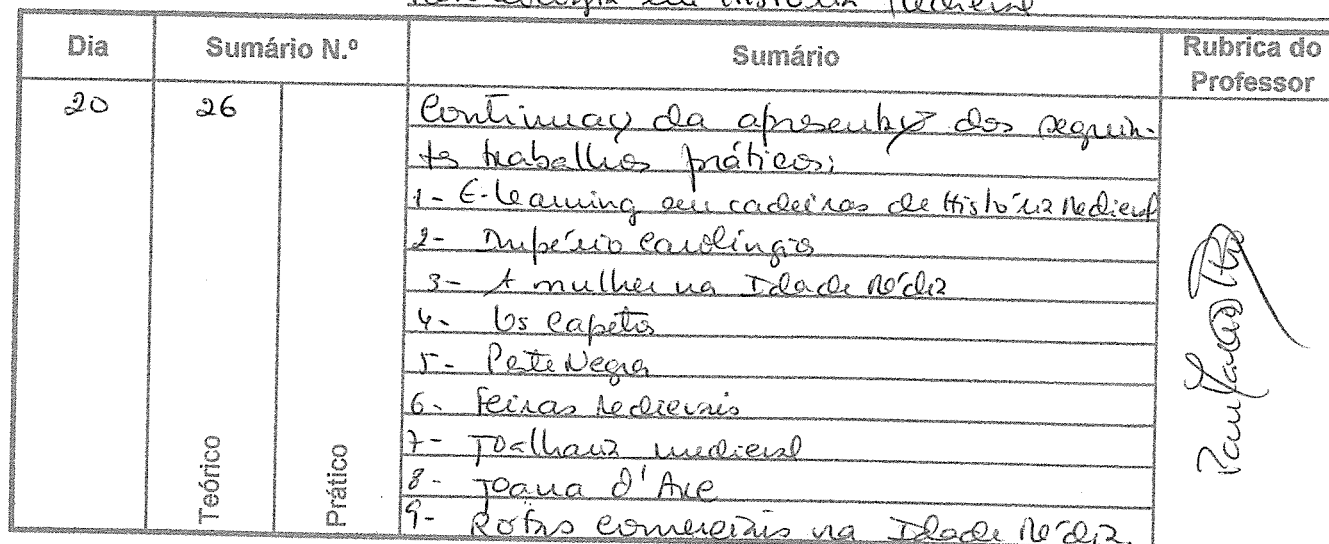 em História Medieval
Dia Sumário N.º Sumário Rubrica do Professor
20 26 Continuação da apresentação dos seguin-
tes trabalhos práticos:
1- E-learning em cadeiras de História Medieval
2- Império Carolíngio
3- A mulher na Idade Média
4- Os Capetos
5- Peste Negra
6- Feiras Medievais
7- Joalharia medieval
8- Joana d'Arc
9- Rotas comerciais na Idade Média.
Teórico
Prático